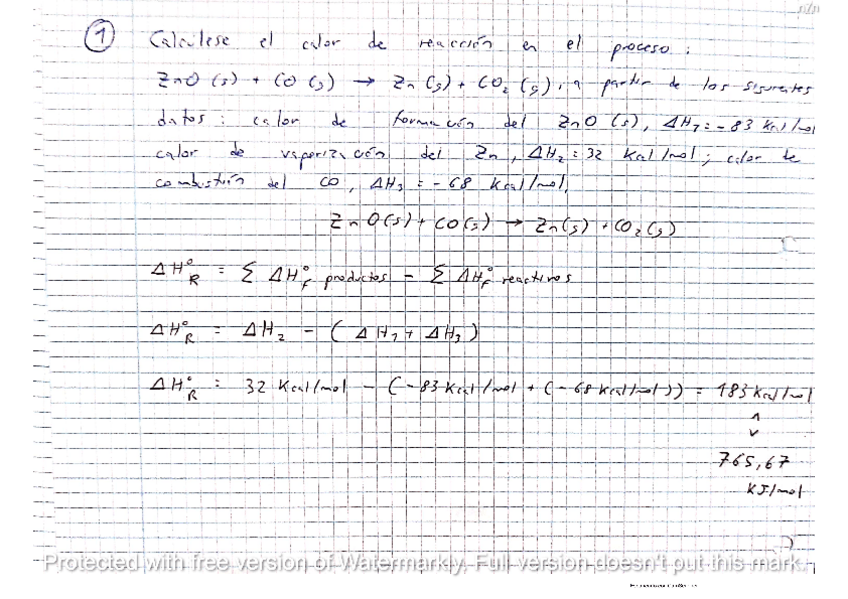 1 Calcúlese el calor de reacción en el proceso:
ZnO (s) + CO (g) → Zn (g) + CO₂ (g), a partir de los siguientes
datos: calor de formación del ZnO (s), ΔH₁ = -83 Kcal/mol
calor de vaporización del Zn, ΔH₂ = 32 Kcal/mol; calor de
combustión del CO, ΔH₃ = -68 Kcal/mol.
ZnO(s) + CO(g) → Zn(g) + CO₂(g)
ΔH°R = Σ ΔH°f productos - Σ ΔH°f reactivos
ΔH°R = ΔH₂ - (ΔH₁ + ΔH₃)
ΔH°R = 32 Kcal/mol - (-83 Kcal/mol + (-68 Kcal/mol)) = 183 Kcal/mol
765,67
KJ/mol
Protected with free version of Watermarkly. Full version doesn't put this mark.